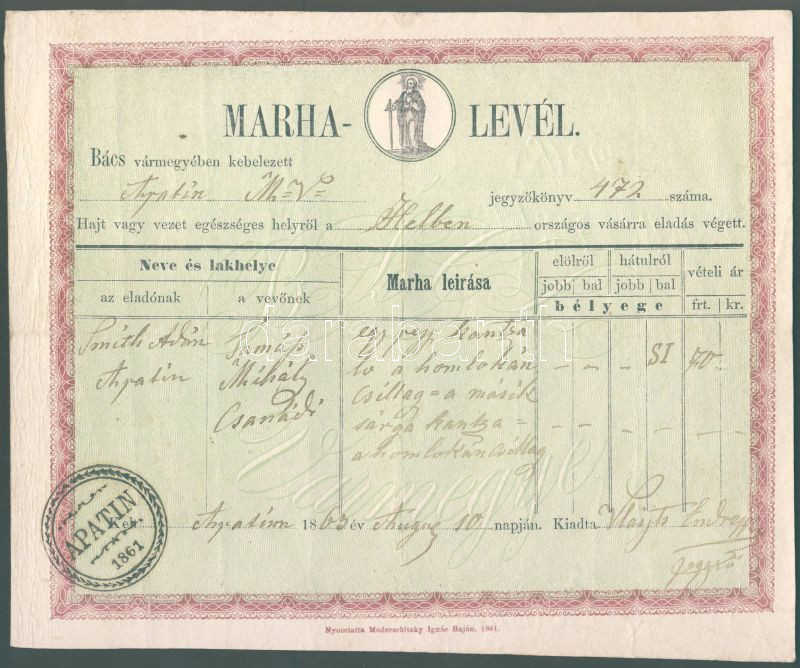 MARHA- LEVÉL.
Bács vármegyében kebelezett
Apatin M=V= jegyzőkönyv 472 száma.
Hajt vagy vezet egészséges helyről a Helben országos vásárra eladás végett.
Neve és lakhelye
az eladónak a vevőnek
Marha leirása
elölről hátulról
jobb bal jobb bal
bélyege
vételi ár
frt. kr.
Smith Adám Tamás egy kantza
Apatin Mihály ló a homlokán SI 70
Csanádi Csillag = a másik
sárga kantza =
a homlokán Csillag
Vármegye
Kelt Apatin 1863 év Aug 10 napján. Kiadta Endre
jegyző
APATIN
1861
Nyomtatta Mederschitzky Ignác Baján. 1861.
darabanth